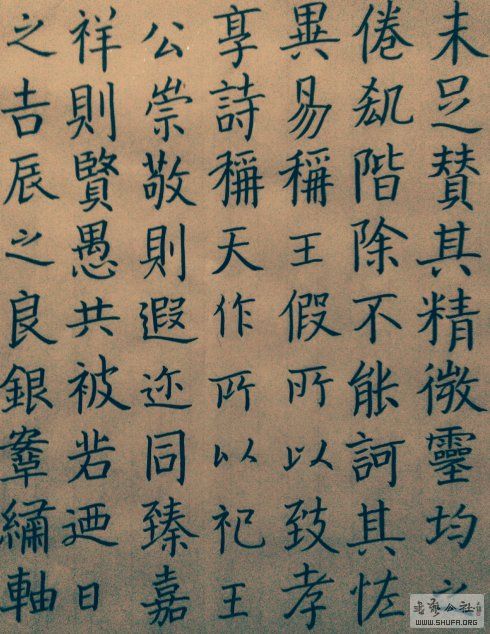 未足賛其精微靈均之
倦階除不能訶其恠
異易稱王假所以致孝
享詩稱天作所以祀王
公崇敬則遐迩同臻嘉
祥則賢愚共被若迺日
之吉辰之良銀繡軸
公社
WWW.SHUFA.ORG